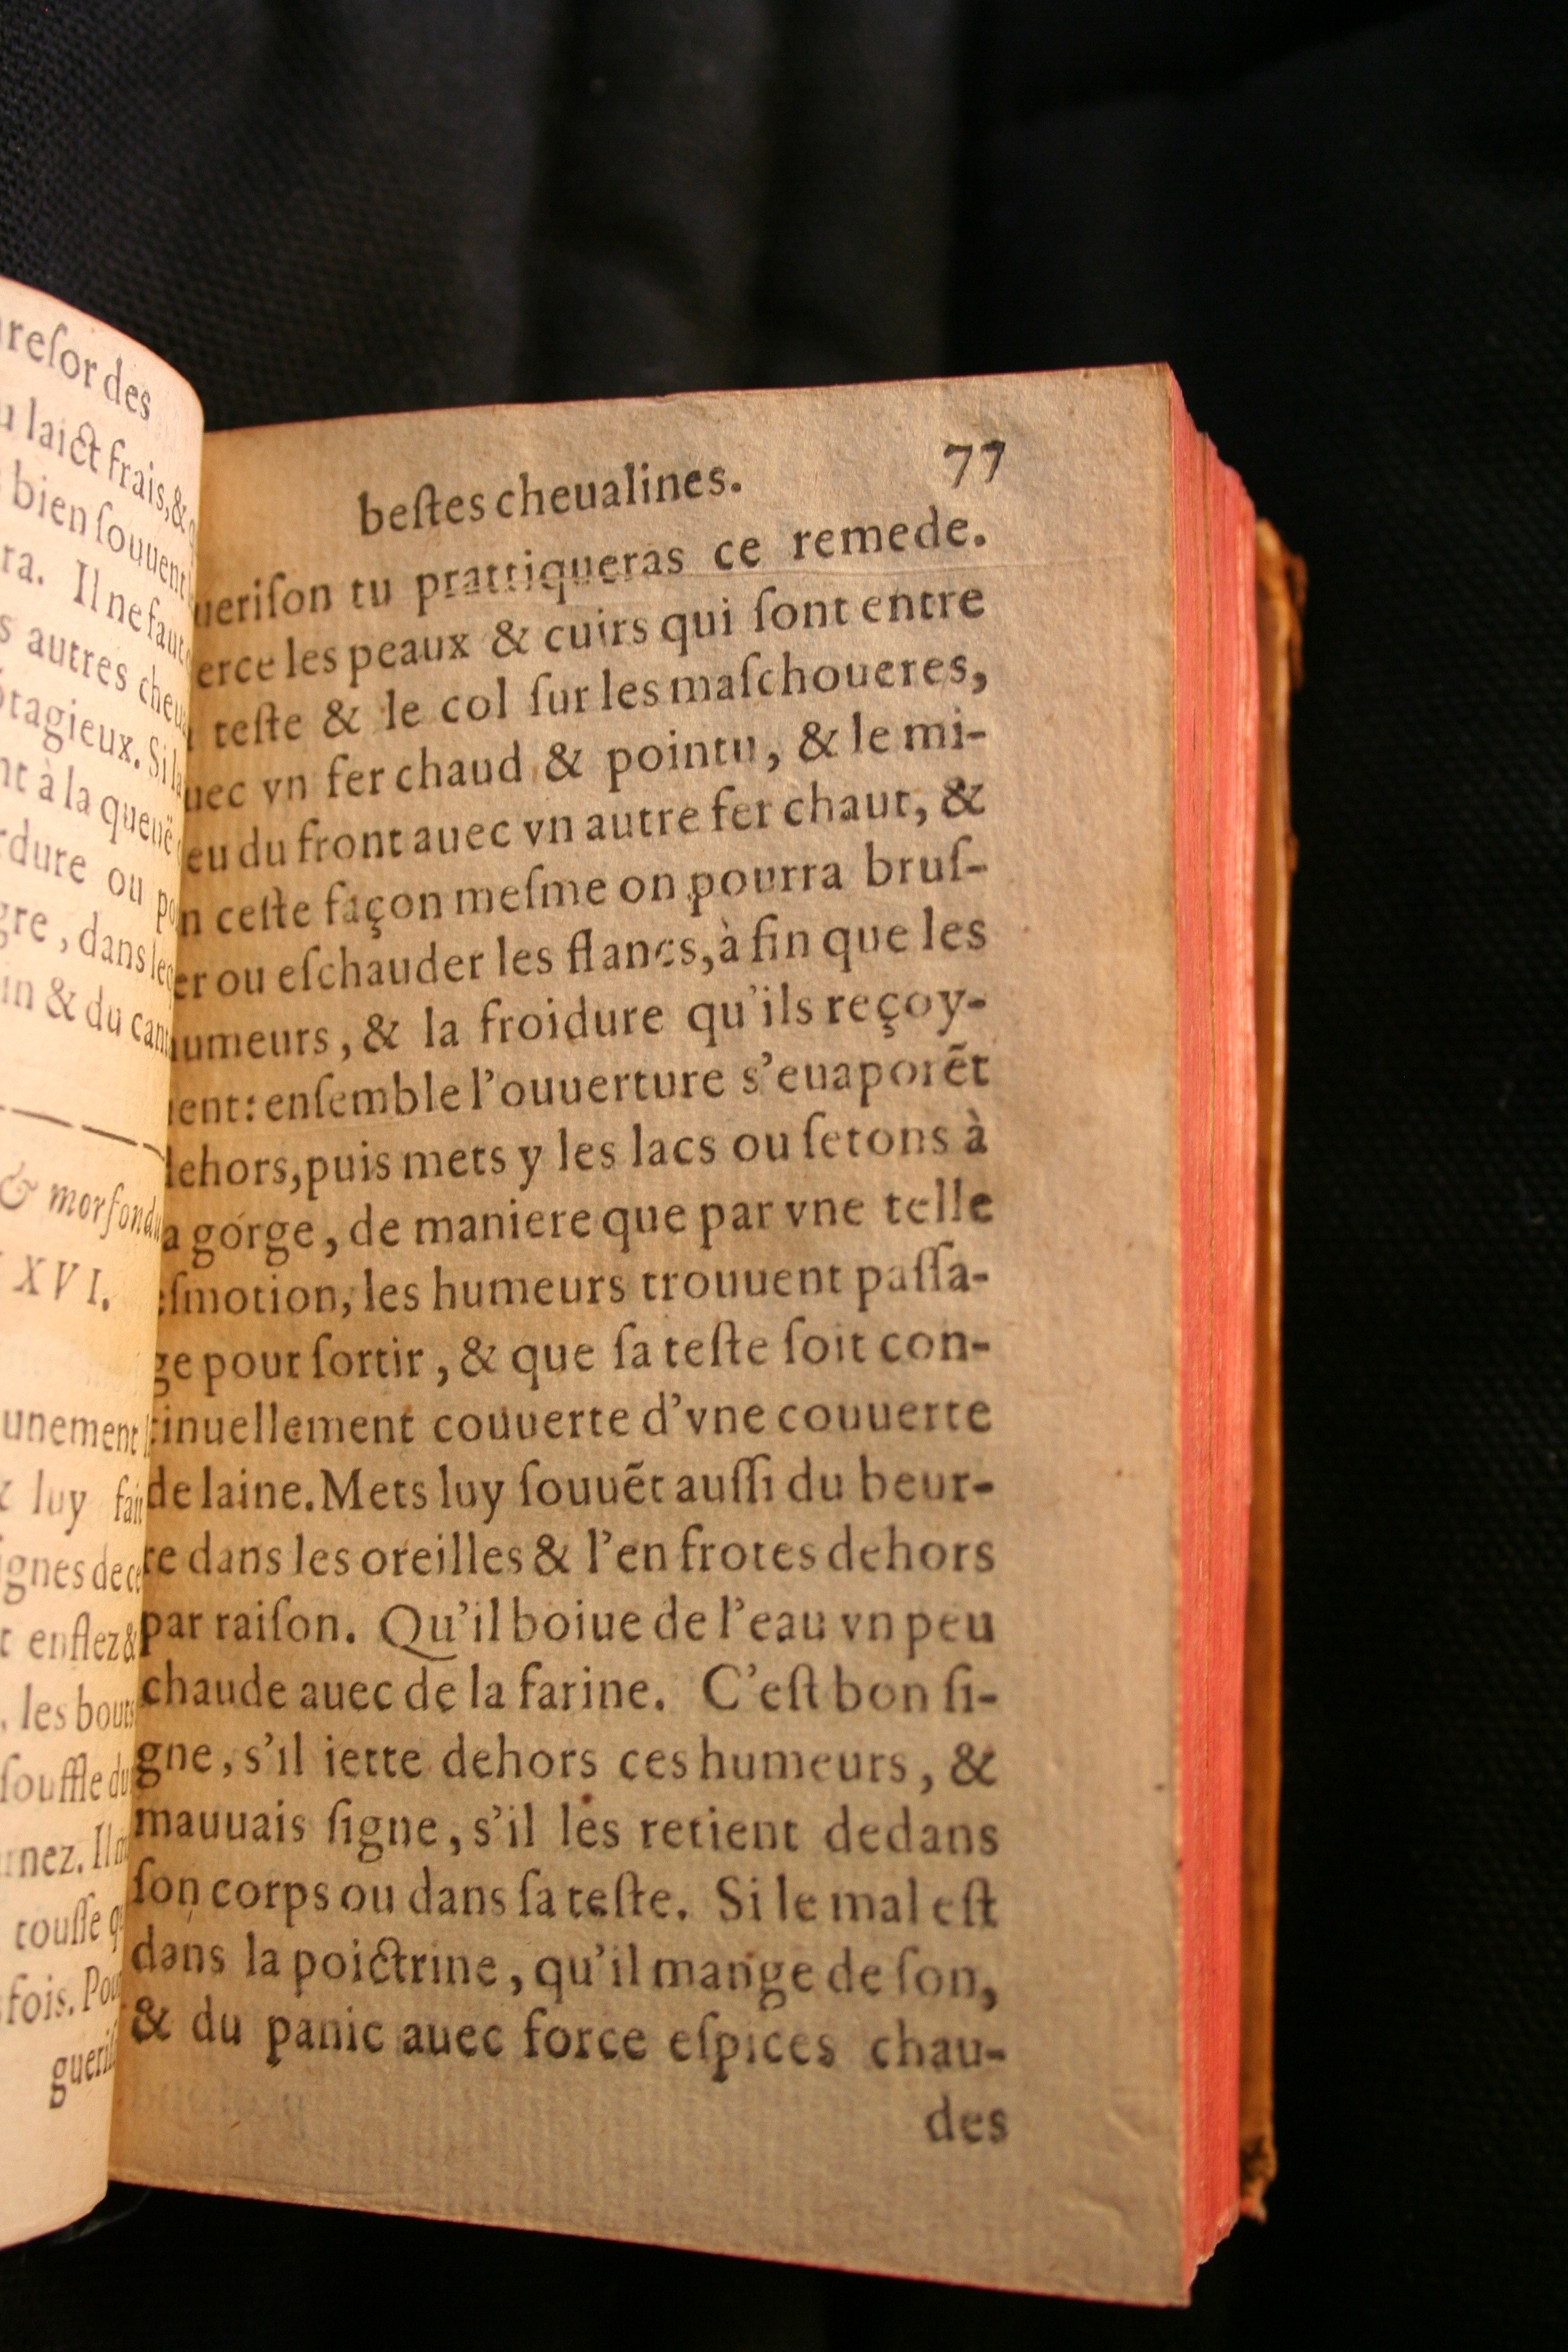 resor des
laict frais, &
bien souuent
ra. Il ne faut
autres
tagieux. Si
à la queuë
dure ou
gre, dans
& du
& morfond
XVI.
unement
luy
ignes de
enflez &
les bouts
souffle du
nez. Il
tousse
fois. Pour
bestes cheualines. 77
ueriſon tu prattiqueras ce remede.
erce les peaux & cuirs qui ſont entre
teſte & le col ſur les maſchoueres,
uec vn fer chaud & pointu, & le mi-
eu du front auec vn autre fer chaut, &
n ceſte façon meſme on pourra bruſ-
er ou eſchauder les flancs, à fin que les
umeurs, & la froidure qu'ils reçoy-
ent: enſemble l'ouuerture s'euaporẽt
dehors, puis mets y les lacs ou ſetons à
a gorge, de maniere que par vne telle
eſmotion, les humeurs trouuent paſſa-
ge pour ſortir, & que ſa teſte ſoit con-
tinuellement couuerte d'vne couuerte
de laine. Mets luy ſouuẽt auſſi du beur-
re dans les oreilles & l'en frotes dehors
par raiſon. Qu'il boiue de l'eau vn peu
chaude auec de la farine. C'eſt bon ſi-
gne, s'il iette dehors ces humeurs, &
mauuais ſigne, s'il les retient dedans
ſon corps ou dans ſa teſte. Si le mal eſt
dans la poictrine, qu'il mange de ſon,
& du panic auec force eſpices chau-
des